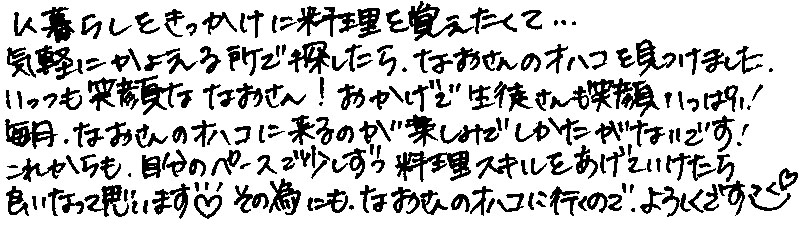 人暮らしをきっかけに料理を覚えたくて…
気軽にかよえる所で探したら、なおさんのオハコを見つけました.
いっつも笑顔ななおさん！おかげで生徒さんも笑顔いっぱい！
毎月、なおさんのオハコに来るのが楽しみでしかたがないです！
これからも、自分のペースで少しずつ料理スキルをあげていけたら
良いなって思います♡その為にも、なおさんのオハコに行くので、よろしくでーす♡